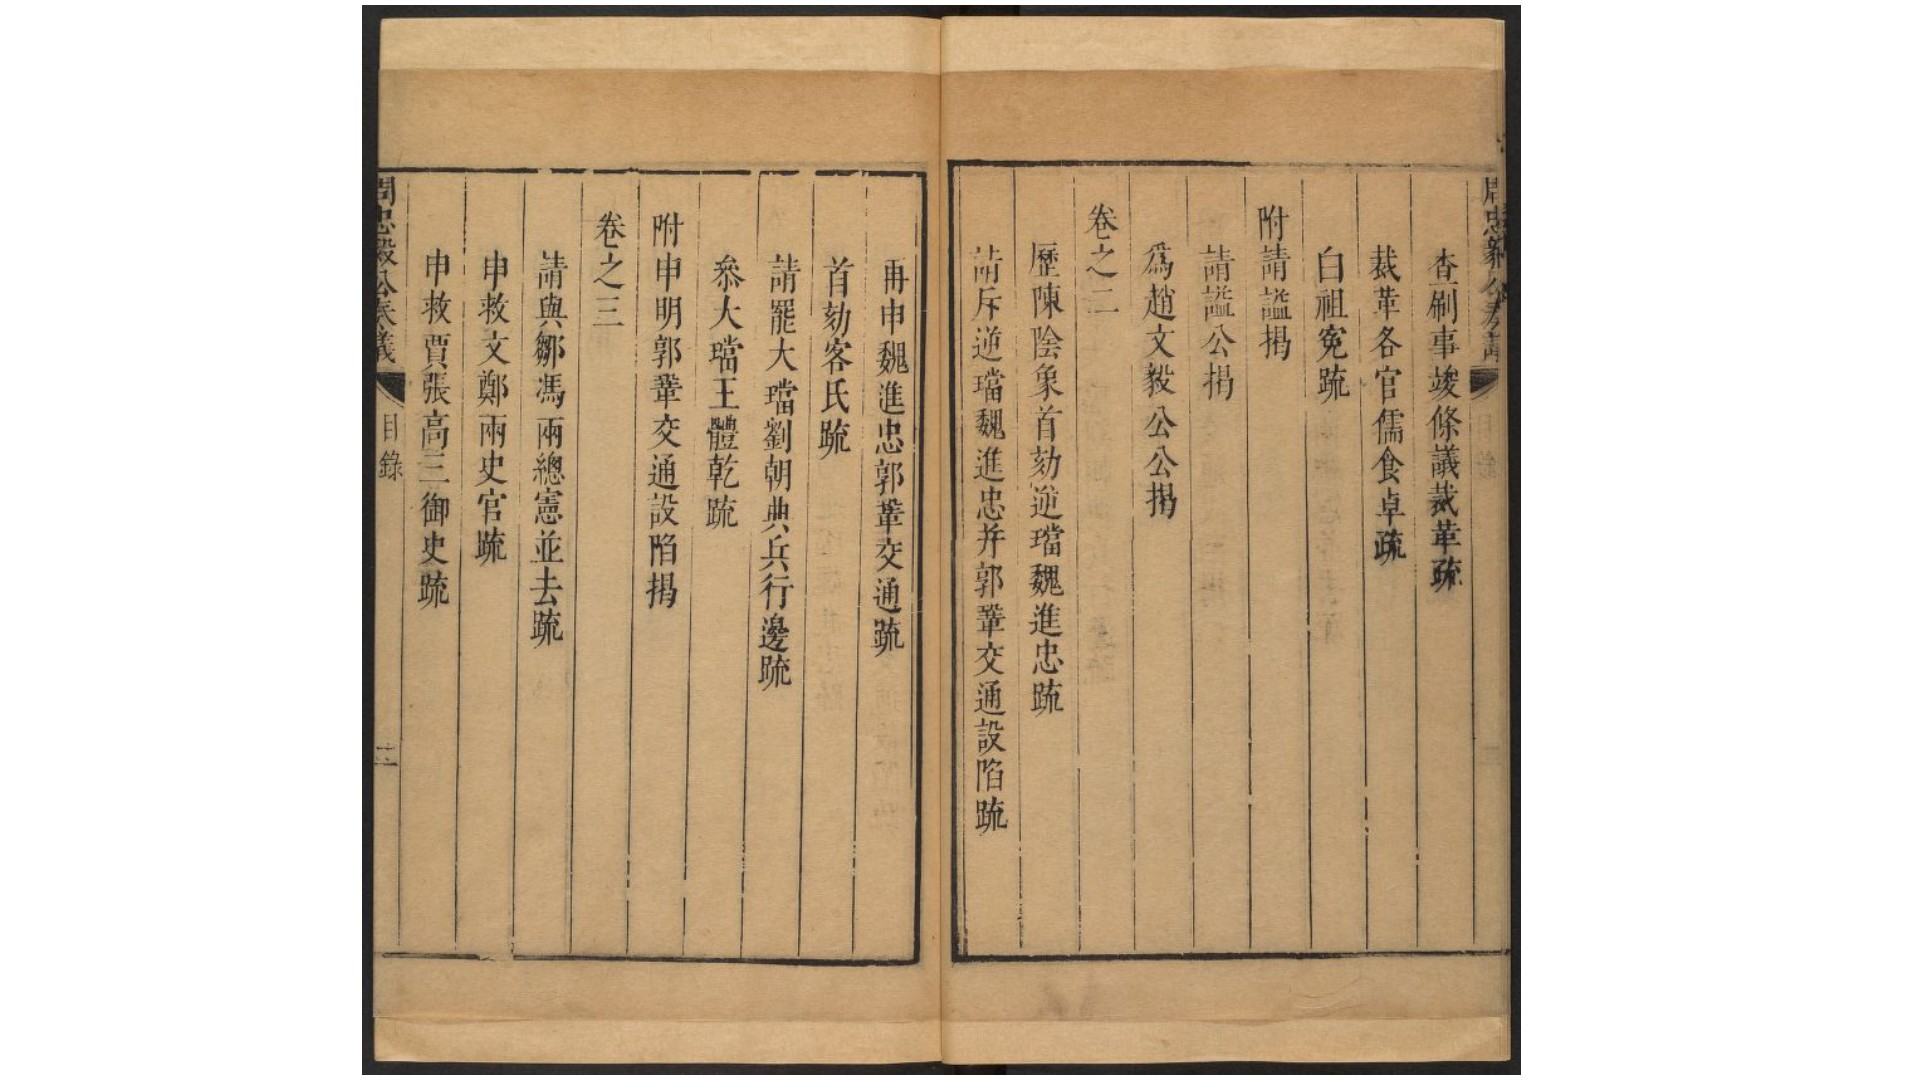 周忠毅公奏議
目錄
查刷事竣條議裁革疏
裁革各官儒食卓疏
白祖寃疏
附請謚揭
請謚公揭
爲趙文毅公公揭
卷之二
歷陳陰象首劾逆璫魏進忠疏
請斥逆璫魏進忠并郭鞏交通設陷疏
再申魏進忠郭鞏交通疏
首劾客氏疏
請罷大璫劉朝典兵行邊疏
叅大璫王體乾疏
附申明郭鞏交通設陷揭
卷之三
請與鄒馮兩總憲並去疏
申救文鄭兩史官疏
申救賈張高三御史疏
周忠毅公奏議
目錄